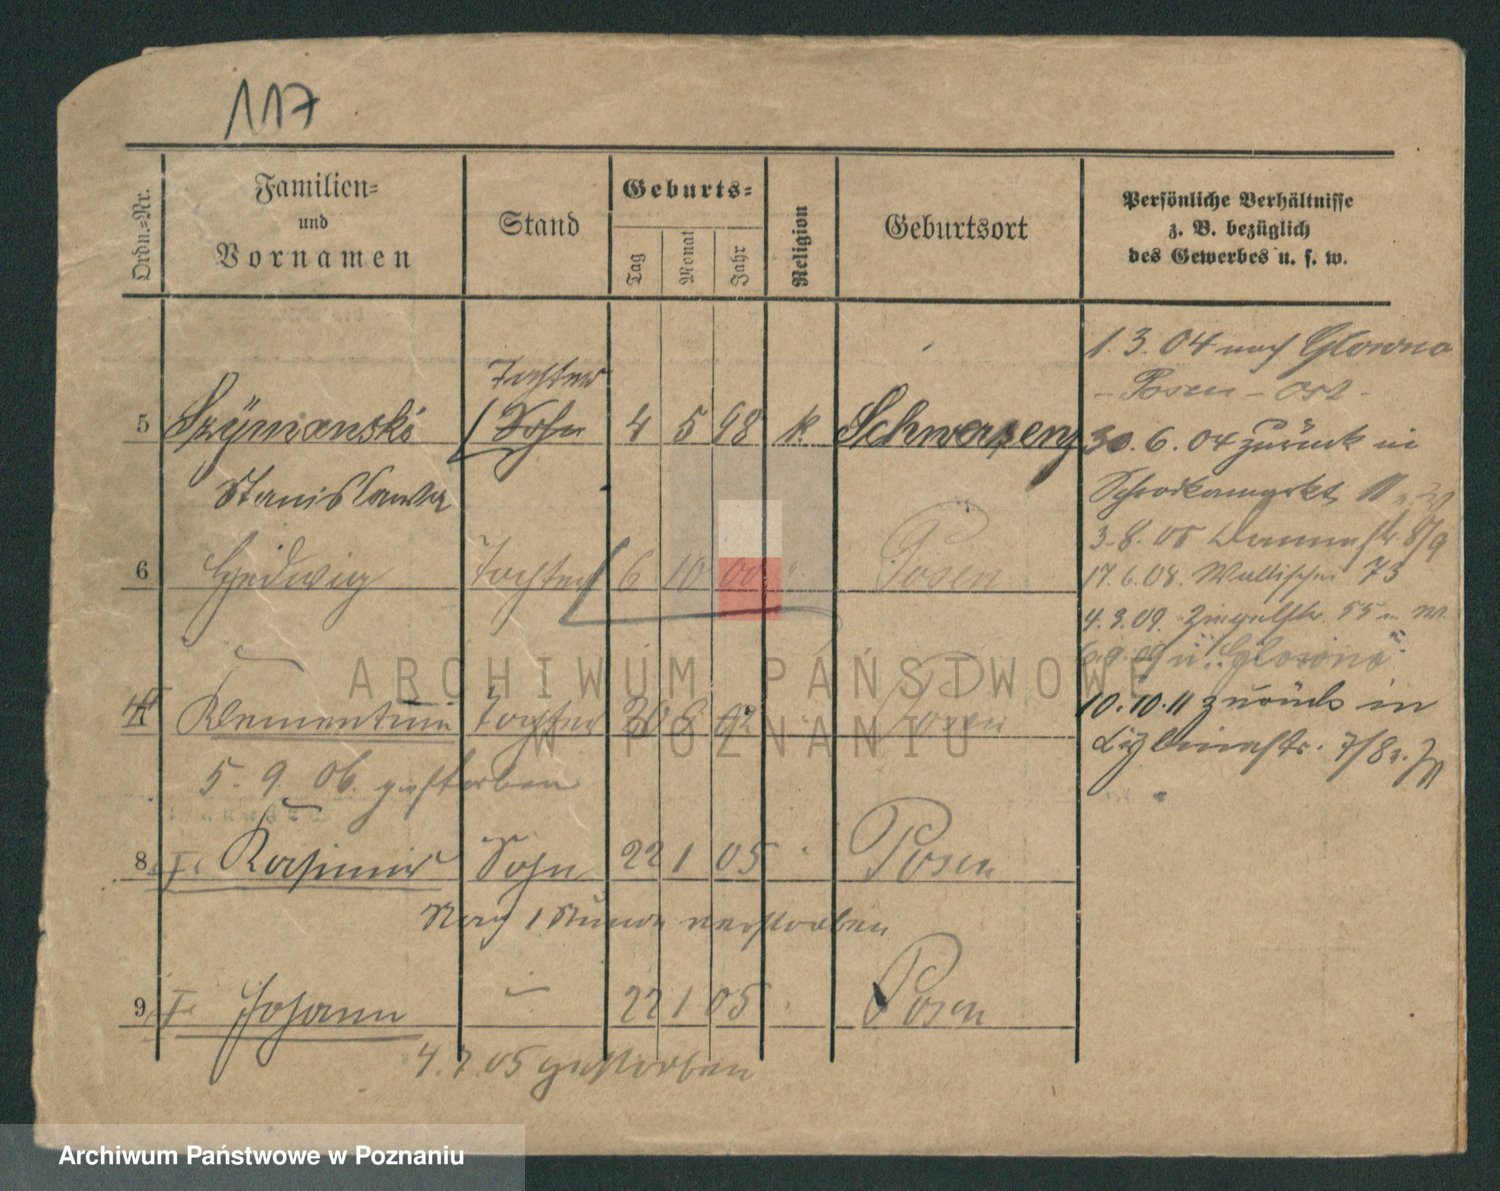 117
Ordn.-Nr.
Familien-
und
Vornamen
Stand
Geburts-
Tag
Monat
Jahr
Religion
Geburtsort
Persönliche Verhältnisse
z. B. bezüglich
des Gewerbes u. s. w.
1. 3. 04 nach Glowno
- Posen - Ost -
Tochter
5 Szymanski Sohn 4 5 98 k Schwersenz
30. 6. 04 zurück in
Stanislawa
3. 8. 05
6 Hedwig Tochter 6 10 00 " Posen
17. 6. 08. Wallischei 73
4. 9. 09. 55
Glowno
Klementine Tochter 20 6 02 Posen
10. 10. 11 zurück in
7/8
5. 9. 06. gestorben
8 Kasimir Sohn 22 1 05 Posen
Nach 1 Stunde verstorben
9 Johann 22 1 05 Posen
4. 7. 05 gestorben
ARCHIWUM PAŃSTWOWE
W POZNANIU
Archiwum Państwowe w Poznaniu